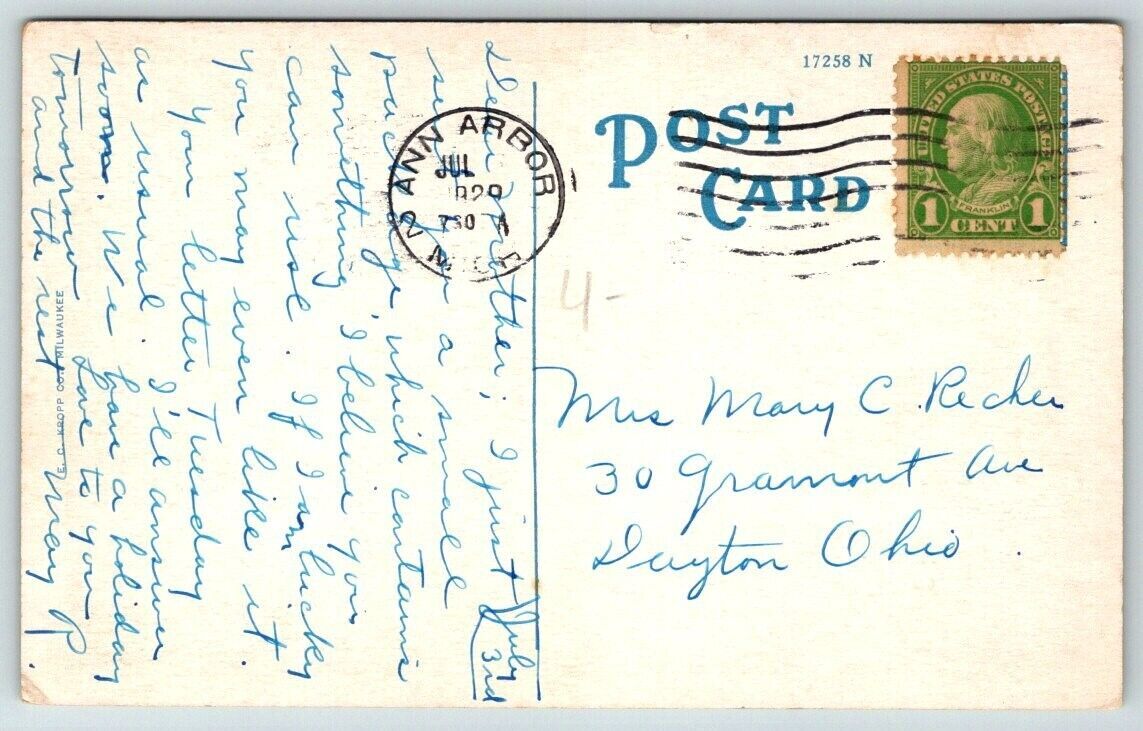 17258 N
POST
CARD
UNITED STATES POSTAGE
FRANKLIN
1 CENT 1
ANN ARBOR
JUL
1929
730 A
MICH
4-
Mrs Mary C. Recher
30 Gramont Ave
Dayton Ohio.
July
3rd
Dear Mother; I just
sent you a small
package, which contains
something, I believe you
can use. If I am lucky
you may even like it.
Your letter Tuesday
as usual. I'll answer
soon. We have a holiday
tomorrow. Love to you
and the rest May P.
E. C. KROPP CO. MILWAUKEE